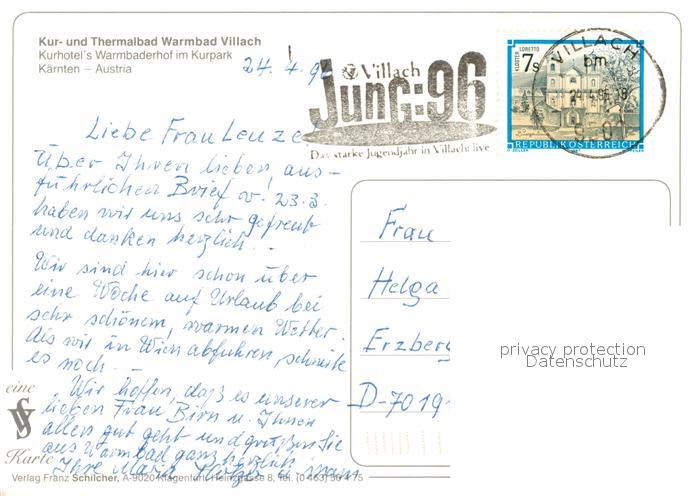 Kur- und Thermalbad Warmbad Villach
Kurhotel's Warmbaderhof im Kurpark
Kärnten – Austria
24. 4. 96
Villach
Jung:96
Das starke Jugendjahr in Villach: live
KLOSTER LORETTO
7s
REPUBLIK ÖSTERREICH
VILLACH
bm
9501
Liebe Frau Leuze
Über Ihren lieben, aus-
führlichen Brief v. 23.3.
haben wir uns sehr gefreut
und danken herzlich. –
Wir sind hier schon über
eine Woche auf Urlaub bei
sehr schönem, warmen Wetter.
Als wir in Wien abfuhren, schneite
es noch. –
Wir hoffen, daß es unserer
lieben Frau Birn u. Ihnen
allen gut geht und grüßen Sie
aus Warmbad ganz herzlich
Ihre Maria
Frau
Helga
Erzberg
D-7019
eine
Karte
Verlag Franz Schilcher, A-9020 Klagenfurt, Heinzgasse 8, Tel. (0 463)
privacy protection
Datenschutz